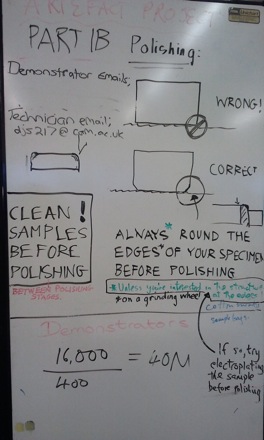 ARTEFACT PROJECT
PART IB
Polishing:
Demonstrator emails,
Technician email,
djs217@cam.ac.uk
WRONG!
CORRECT
CLEAN!
SAMPLES
BEFORE
POLISHING
BETWEEN POLISHING
STAGES.
ALWAYS* ROUND THE
EDGES* OF YOUR SPECIMEN
BEFORE POLISHING
*Unless you're interested in the structure
at the edges
*on a grinding wheel
Demonstrators
16,000
400
= 40M
If so, try
electroplating
the sample
before polishing